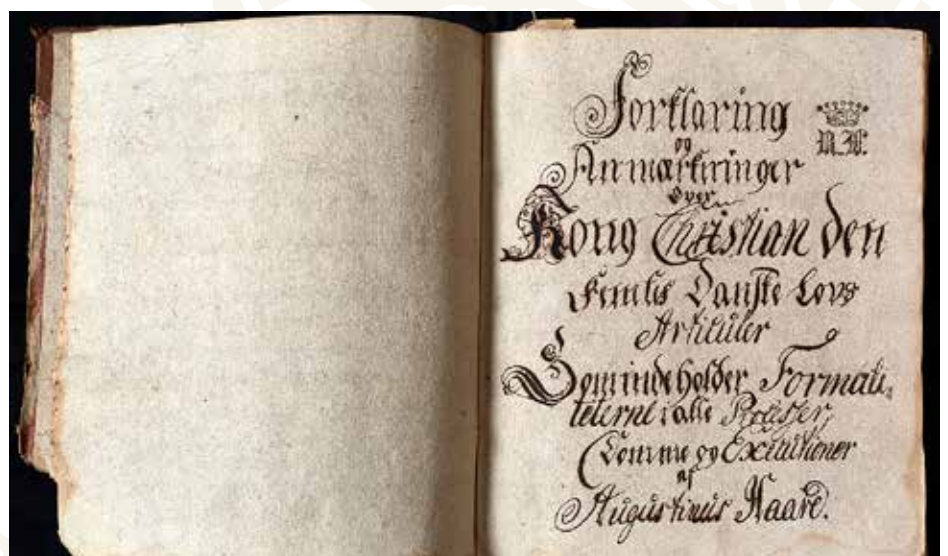 Forklaring
og
Anmærkninger
over
Kong Christian den
Femtes Danske Lovs
Artikuler
Som indeholder Formali-
teterne i alle Processer,
Domme og Executioner
af
Augustinus Naare.